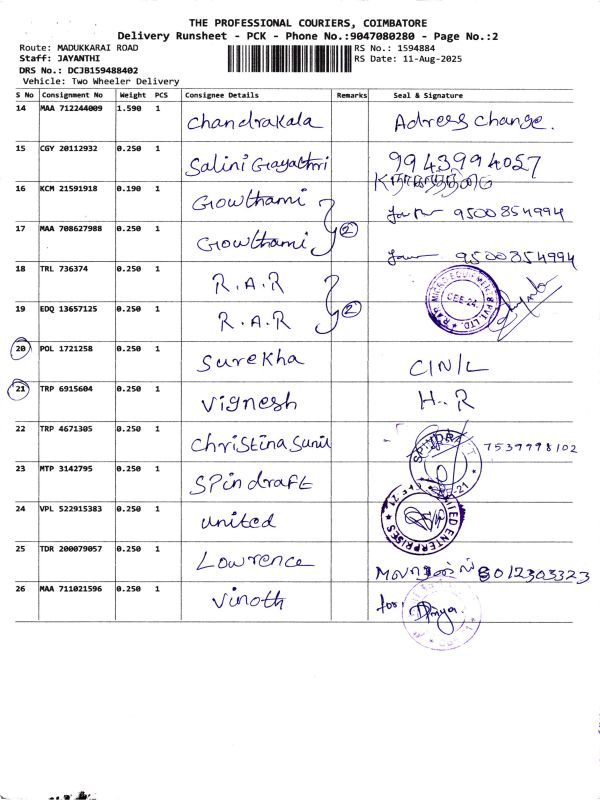 THE PROFESSIONAL COURIERS, COIMBATORE
Delivery Runsheet - PCK - Phone No.:9047080280 - Page No.:2
Route: MADUKKARAI ROAD RS No.: 1594884
Staff: JAYANTHI RS Date: 11-Aug-2025
DRS No.: DCJB159488402
Vehicle: Two Wheeler Delivery
S No Consignment No Weight PCS Consignee Details Remarks Seal & Signature
14 MAA 712244009 1.590 1 Chandrakala Adress change.
15 CGY 20112932 0.250 1 Salini Gayathri 9943994027
16 KCM 21591918 0.190 1 Gowthami 9500854994
17 MAA 708627988 0.250 1 Gowthami 2 9500854994
18 TRL 736374 0.250 1 R.A.R CBE-24
19 EDQ 13657125 0.250 1 R.A.R 2
20 POL 1721258 0.250 1 Surekha CIN/L
21 TRP 6915604 0.250 1 Vignesh H.R
22 TRP 4671305 0.250 1 Christina Sunil 7539998102
23 MTP 3142795 0.250 1 Spindraft
24 VPL 522915383 0.250 1 United UNITED ENTERPRISES
25 TDR 200079057 0.250 1 Lowrence 8012303323
26 MAA 711021596 0.250 1 Vinoth for